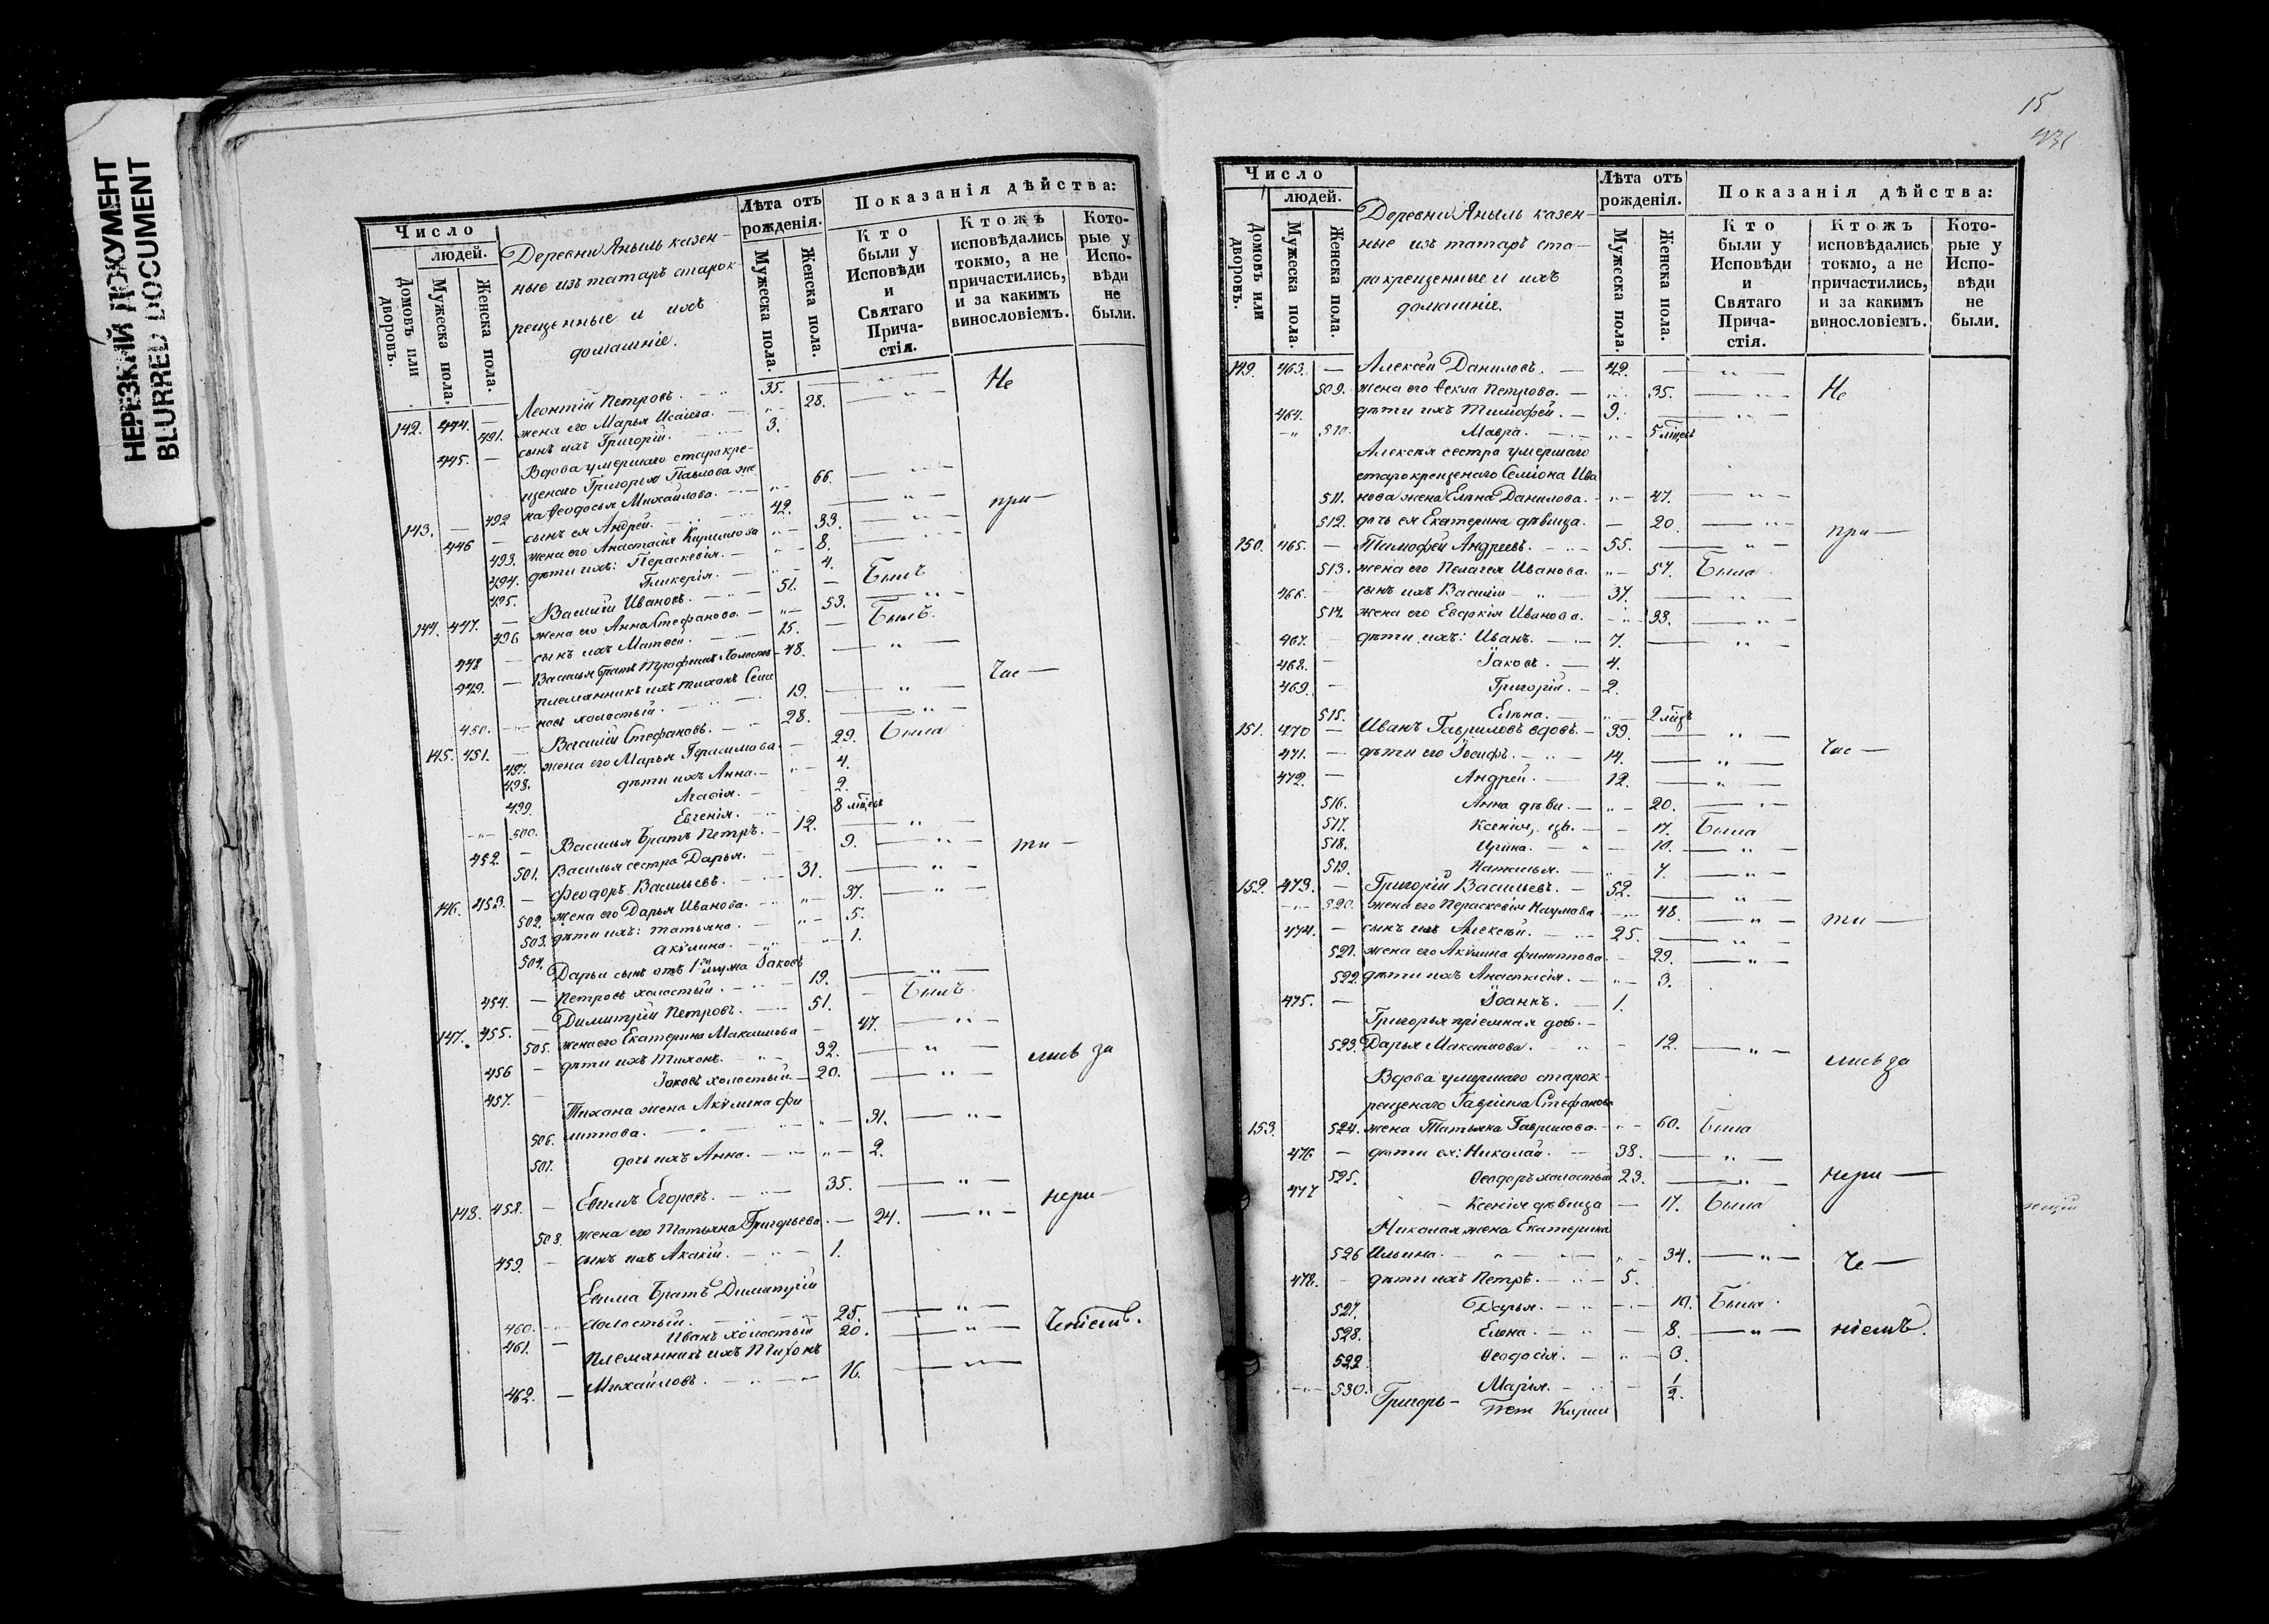 НЕРЕЗКИЙ ДОКУМЕНТ
BLURRED DOCUMENT
Число
людей.
Домовъ или дворовъ.
Мужеска пола.
Женска пола.
Деревни Яныль казен-
ные изъ татаръ старок-
рещенные и ихъ
домашніе.
Лѣта отъ рожденія.
Мужеска пола.
Женска пола.
Показанія дѣйства:
Кто были у Исповѣди и Святаго Причастія.
Ктожъ исповѣдались токмо, а не причастились, и за какимъ винословіемъ.
Которые у Исповѣди не были.
142. 444. — Леонтій Петровъ. — 35. Не
491. жена его Марья Исаева. — 28.
445. — сынъ ихъ Григорій. — 3.
Вдова умершаго старокре-
щенаго Григорья Павлова же
143. — 492 на Ѳеодосья Михайлова. — 66.
446 — сынъ ея Андрей. — 42. при—
493. жена его Анастасія Кириллова 33.
494. дѣти ихъ: Параскевія. — 8.
495. Гликерія. — 4.
144. 447. — Василій Ивановъ. — 51. — Былъ
496 жена его Анна Стефанова. — 53.
448 — сынъ ихъ Матвей. — 25. — Былъ.
449. — Василья братъ Трофимъ Холостъ — 48.
племянникъ ихъ Тихонъ Семе
450. — новъ холостый. — 19. Час—
145. 451. — Василій Стефановъ. — 28.
497. жена его Марья Герасимова. — 29. Была
498. дѣти ихъ Анна. — 4.
499. Агафія. — 2.
500. Евгенія. — 8 мѣсяц
452. — Василья братъ Петръ. — 12.
501. Василья сестра Дарья. — 9. ти—
146. 453. — Феодоръ Васильевъ. — 31.
502. жена его Дарья Иванова. — 37.
503. дѣти ихъ: Татьяна. — 5.
504. Акулина. — 1.
Дарьи сынъ отъ 1го мужа Іаковъ
454. — Петровъ холостый. — 19.
147. 455. — Димитрій Петровъ. — 51. — Былъ
505. жена его Екатерина Максимова — 47.
456 — дѣти ихъ Тихонъ. — 32. лись за
457. — Іаковъ холостый — 20.
Тихона жена Акулина Фи
506. липпова. — 31.
507. дочь ихъ Анна. — 2.
148. 458. — Евѳимъ Егоровъ. — 35.
508. жена его Татьяна Григорьева. — 24. нера—
459. — сынъ ихъ Акакій. — 1.
Евѳима братъ Димитрій
460. — холостый. — 25.
461. — Иванъ холостый 20. Ченіемъ.
племянникъ ихъ Тихонъ
462. — Михайловъ. — 16.
15
Число
людей.
Домовъ или дворовъ.
Мужеска пола.
Женска пола.
Деревни Яныль казен-
ные изъ татаръ ста-
рокрещенные и ихъ
домашніе.
Лѣта отъ рожденія.
Мужеска пола.
Женска пола.
Показанія дѣйства:
Кто были у Исповѣди и Святаго Причастія.
Ктожъ исповѣдались токмо, а не причастились, и за какимъ винословіемъ.
Которые у Исповѣди не были.
149. 463. — Алексей Даниловъ. — 42.
509. жена его Ѳекла Петрова. — 35. Не
464. дѣти ихъ Тимофей. — 9.
510. Мавра. — 5 мѣсяц
Алексея сестра умершаго
старокрещенаго Семіона Ива
511. нова жена Елена Данилова. — 47.
512. дочь ея Екатерина дѣвица. — 20. при—
150. 465. — Тимофей Андреевъ. — 55.
513. жена его Пелагея Иванова. — 57. Была
466. — сынъ ихъ Василій — 37.
514. жена его Евдокія Иванова. — 33.
467. — дѣти ихъ: Иванъ. — 7.
468. — Іаковъ. — 4.
469. — Григорій. — 2.
515. Елена. — 2 мѣс
151. 470 — Иванъ Гавриловъ вдовъ. — 39.
471. — дѣти его Іосифъ. — 14. Час—
472. — Андрей. — 12.
516. Анна дѣви. — 20.
517. Ксенія, ца. — 17. Была
518. Ирина. — 10.
519. Наталья. — 7.
152. 473. — Григорій Васильевъ. — 52.
520. жена его Параскевія Наумова — 48. ти—
474. — сынъ ихъ Алексѣй. — 25.
521. жена его Акулина Филиппова — 29.
522. дѣти ихъ Анастасія. — 3.
475. — Іоаннъ. — 1.
Григорья пріемная дочь. —
523. Дарья Максимова. — 12. лись за
Вдова умершаго старок-
рещенаго Гавріила Стефанова
153. 524. жена Татьяна Гаврилова. — 60. Была
476 — дѣти ея: Николай. — 38.
525. Ѳеодоръ холостый 23. нера—
477 — Ксенія дѣвица — 17. Была
Николая жена Екатерина
526 Ильина. — 34. Че—
478. — дѣти ихъ Петръ. — 5.
527. Дарья. — 10. Была
528. Елена. — 8. ніемъ.
529 Ѳеодосія. — 3.
530. Марія. — 1/2.
Григорь-